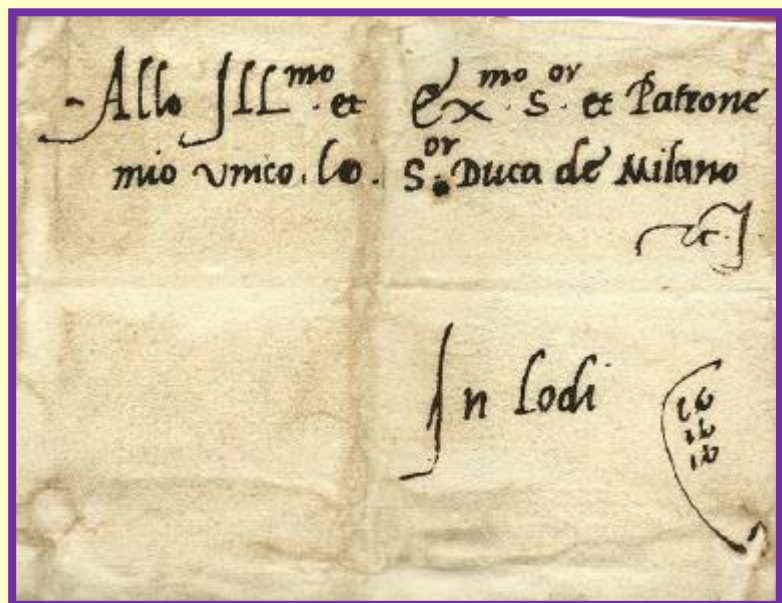 Allo Ill^mo. et Ex^mo. S^or. et Patrone
mio unico. lo. S^or. Duca de Milano
In Lodi